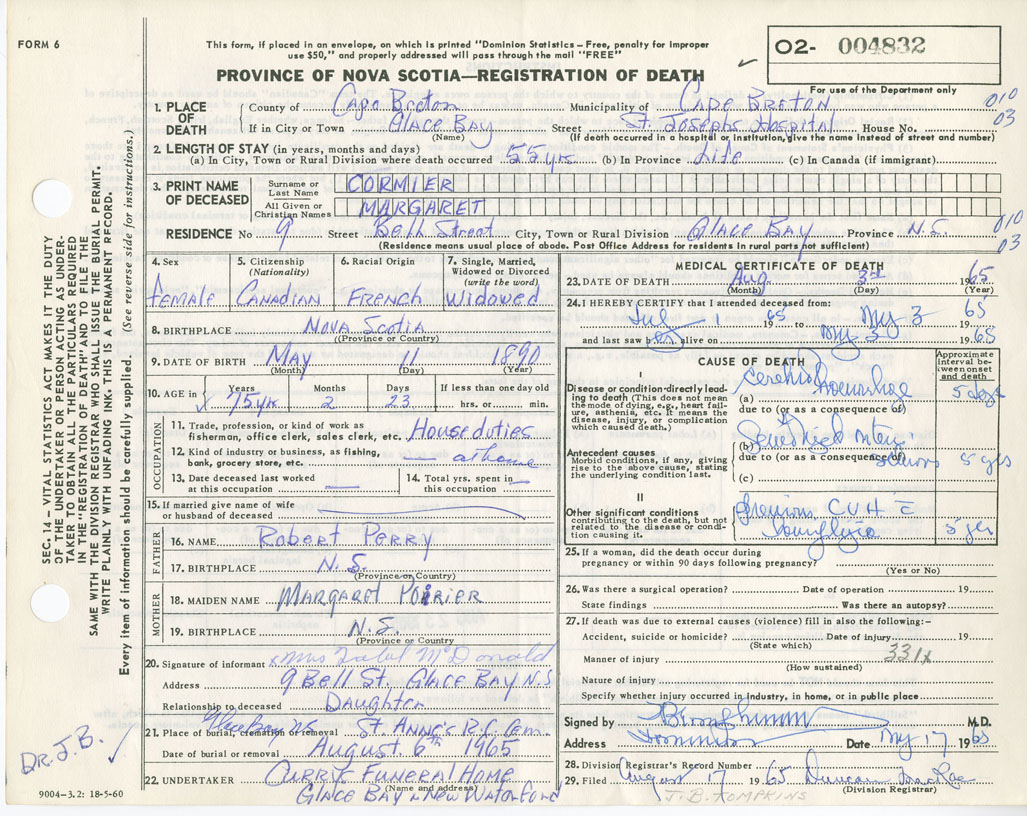 FORM 6
This form, if placed in an envelope, on which is printed "Dominion Statistics – Free, penalty for improper
use $50," and properly addressed will pass through the mail "FREE"
O2- 004832
PROVINCE OF NOVA SCOTIA—REGISTRATION OF DEATH
For use of the Department only
1. PLACE OF DEATH
County of Cape Breton Municipality of CAPE BRETON 010
If in City or Town GLACE BAY Street St. Josephs Hospital House No. 03
(Name) (If death occurred in a hospital or institution, give the name instead of street and number)
2. LENGTH OF STAY (in years, months and days)
(a) In City, Town or Rural Division where death occurred 55 yrs (b) In Province Life (c) In Canada (if immigrant)
3. PRINT NAME OF DECEASED
Surname or Last Name CORMIER
All Given or Christian Names MARGARET
RESIDENCE No 9 Street Bell Street City, Town or Rural Division GLACE BAY Province N.S. 010
(Residence means usual place of abode. Post Office Address for residents in rural parts not sufficient) 03
4. Sex Female
5. Citizenship (Nationality) CANADIAN
6. Racial Origin FRENCH
7. Single, Married, Widowed or Divorced (write the word) Widowed
8. BIRTHPLACE NOVA SCOTIA
(Province or Country)
9. DATE OF BIRTH MAY 11 1890
(Month) (Day) (Year)
10. AGE in Years Months Days If less than one day old
75 yrs 2 23 hrs. or min.
OCCUPATION
11. Trade, profession, or kind of work as
fisherman, office clerk, sales clerk, etc. House duties
12. Kind of industry or business, as fishing,
bank, grocery store, etc. — at home
13. Date deceased last worked
at this occupation —
14. Total yrs. spent in
this occupation —
15. If married give name of wife
or husband of deceased
FATHER
16. NAME Robert Perry
17. BIRTHPLACE N.S.
(Province or Country)
MOTHER
18. MAIDEN NAME MARGARET POIRIER
19. BIRTHPLACE N.S.
(Province or Country)
20. Signature of informant x Mrs McDonald
Address 9 Bell St. GLACE BAY N.S
Relationship to deceased Daughter
21. Place of burial, cremation or removal Glace Bay N.S. ST. ANNE'S R.C. Cem.
Date of burial or removal August 6th 1965
22. UNDERTAKER CURRIE FUNERAL HOME
(Name and address)
GLACE BAY & NEW WATERFORD
9004-3.2: 18-5-60
MEDICAL CERTIFICATE OF DEATH
23. DATE OF DEATH Aug 3rd 1965
(Month) (Day) (Year)
24. I HEREBY CERTIFY that I attended deceased from:
Jul 1 1965 to 3 1965
and last saw alive on 3 1965
CAUSE OF DEATH
Approximate interval between onset and death
I
Disease or condition directly leading to death (This does not mean the mode of dying, e.g., heart failure, asthenia, etc. It means the disease, injury, or complication which caused death)
(a) Cerebral 5 days
due to (or as a consequence of)
Antecedent causes
Morbid conditions, if any, giving rise to the above cause, stating the underlying condition last.
(b)
due to (or as a consequence of) 5 yrs
(c)
II
Other significant conditions
contributing to the death, but not related to the disease or condition causing it.
Previous 5 yrs
25. If a woman, did the death occur during
pregnancy or within 90 days following pregnancy?
(Yes or No)
26. Was there a surgical operation? Date of operation 19
State findings Was there an autopsy?
27. If death was due to external causes (violence) fill in also the following:–
Accident, suicide or homicide? Date of injury 19
(State which) 331x
Manner of injury
(How sustained)
Nature of injury
Specify whether injury occurred in industry, in home, or in public place
Signed by M.D.
Address Date 17 1965
28. Division Registrar's Record Number
29. Filed August 17 1965 Duncan MacRae
(Division Registrar)
J.B. TOMPKINS
SEC. 14 – VITAL STATISTICS ACT MAKES IT THE DUTY
OF THE UNDERTAKER OR PERSON ACTING AS UNDER-
TAKER TO OBTAIN ALL THE PARTICULARS REQUIRED
IN THE "REGISTRATION OF DEATH" AND TO FILE THE
SAME WITH THE DIVISION REGISTRAR WHO SHALL ISSUE THE BURIAL PERMIT.
WRITE PLAINLY WITH UNFADING INK. THIS IS A PERMANENT RECORD.
Every item of information should be carefully supplied. (See reverse side for instructions.)
DR. J.B.